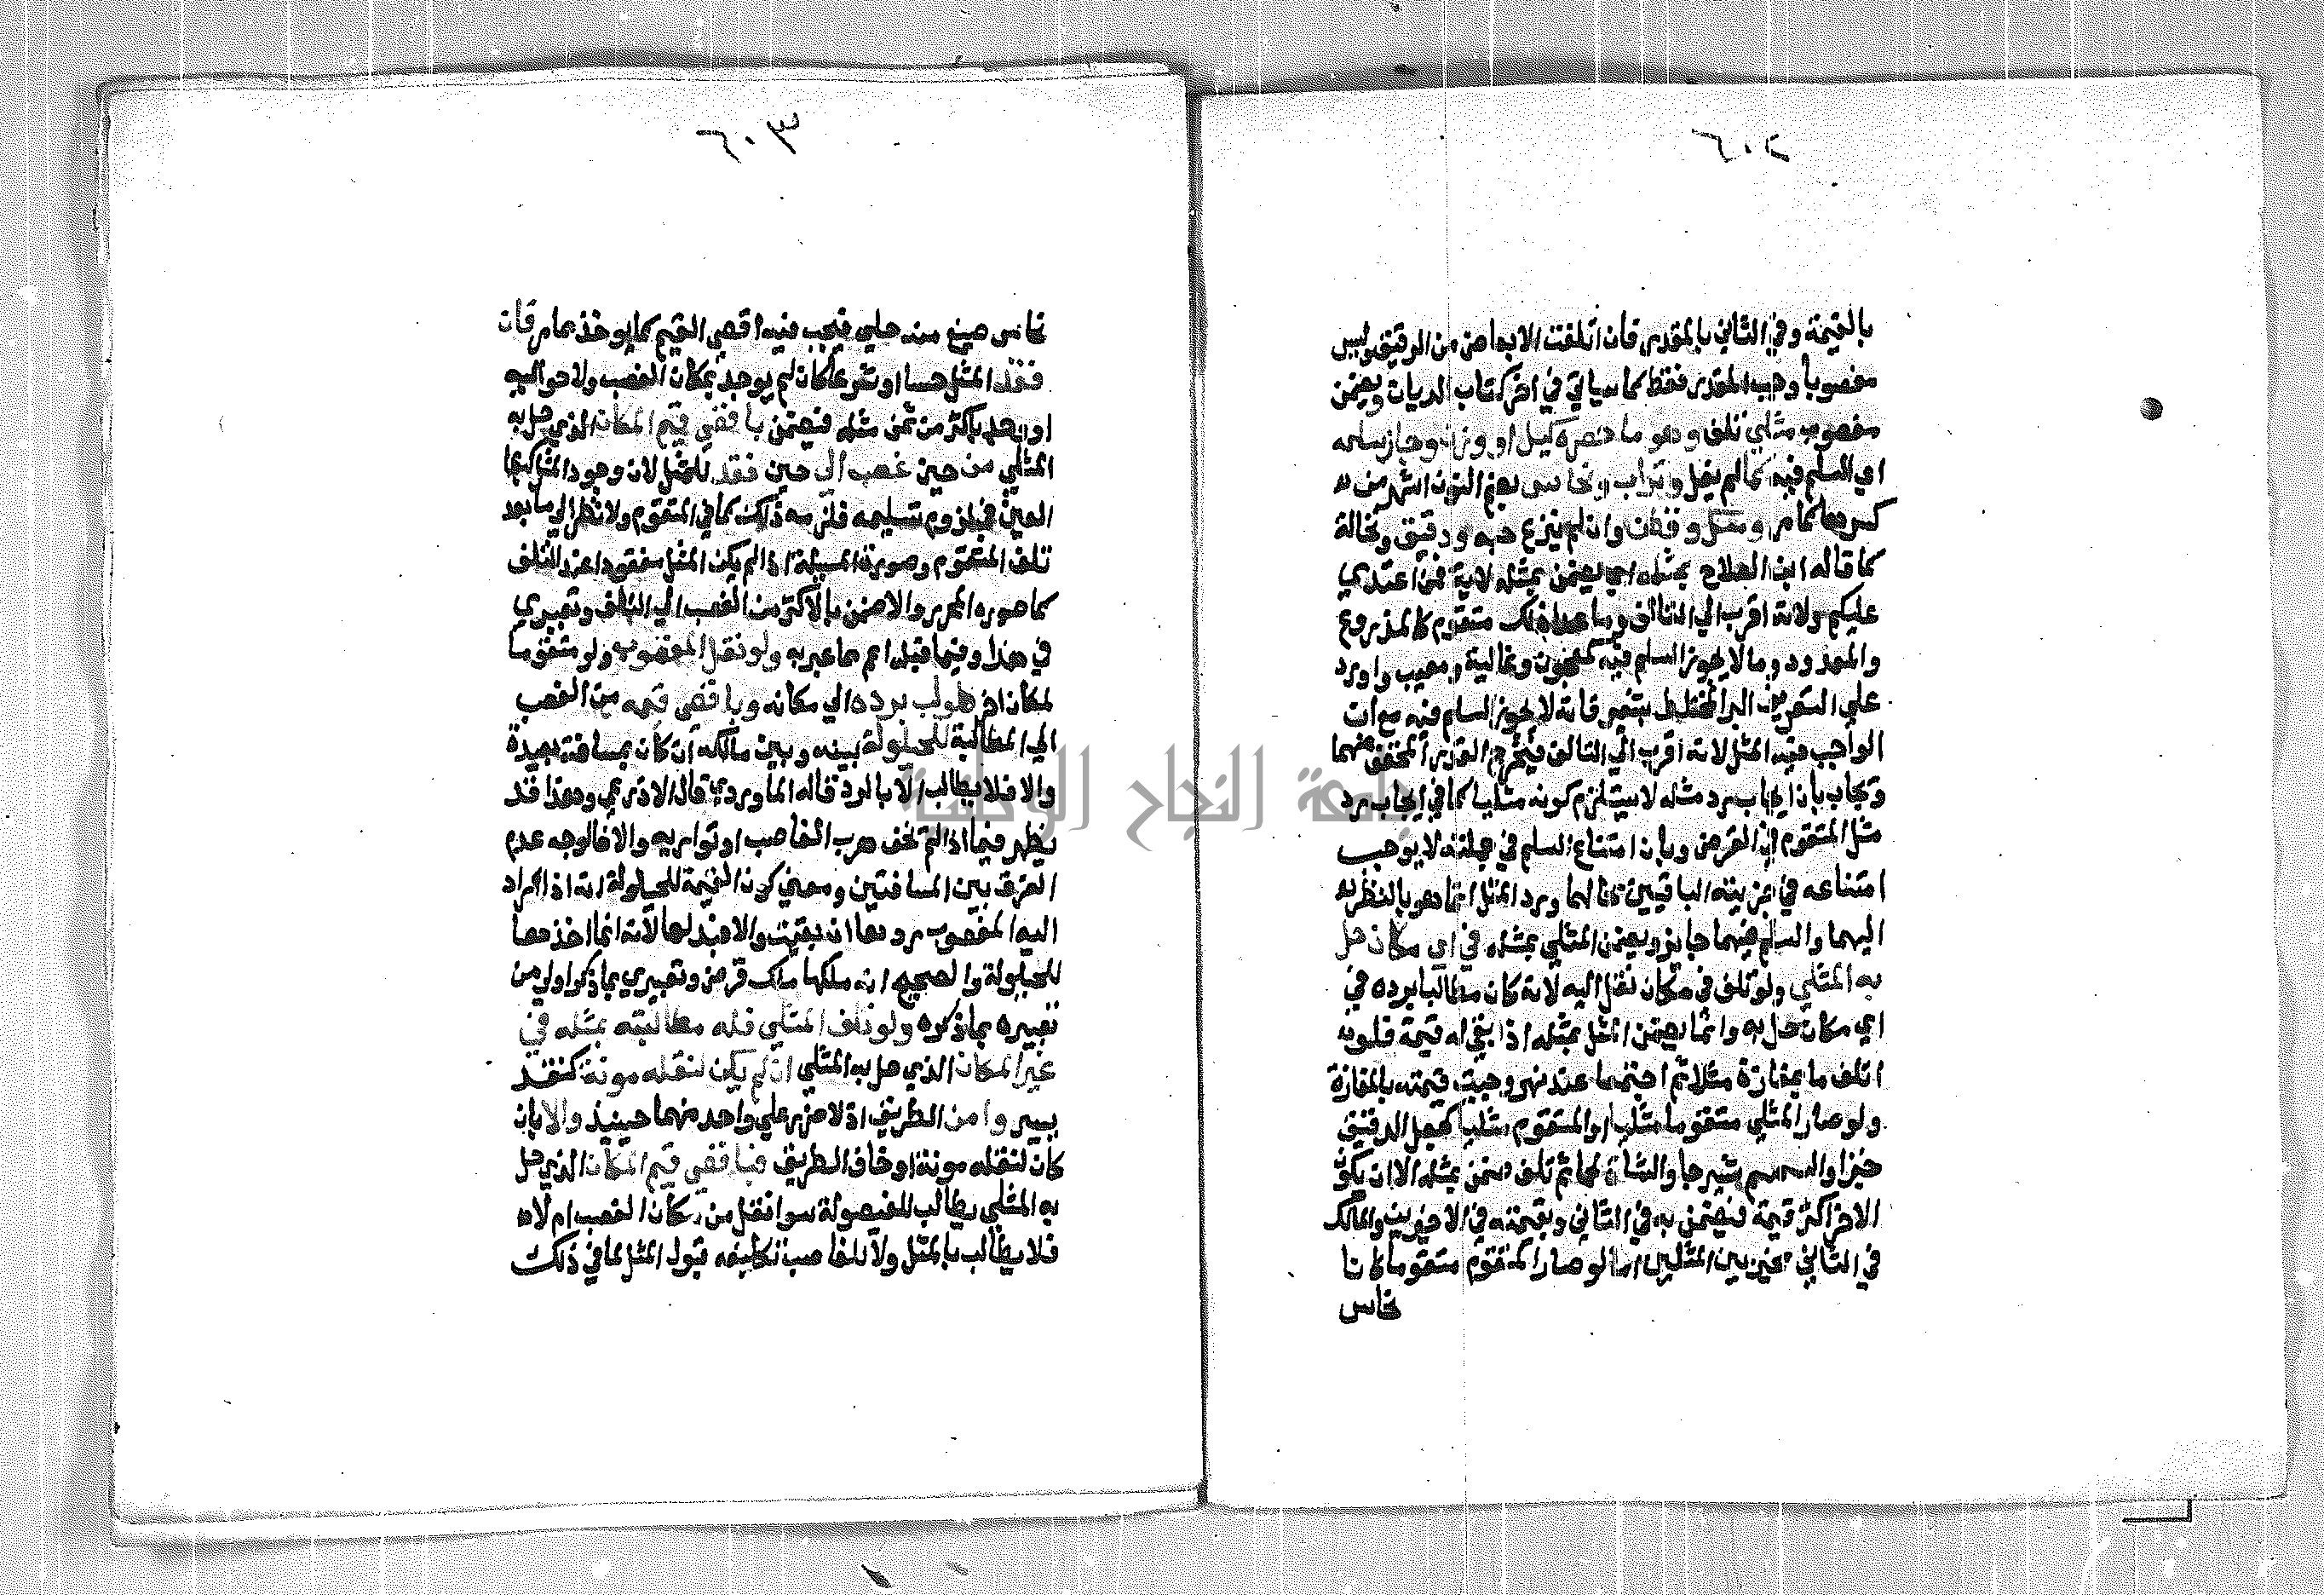 ٢٠٢
بالقيمة وفي الثاني بالمقدر فان اتلفت الابعاض من الرقيق وليس
مغصوبا وجب المقدر فقط كما سياتي في اخر كتاب الديات ويضمن
مغصوب مثلي تلف وهو ما حصره كيل او وزن وجاز سلمه
اي السلم فيه كما لم يغل وتراب ونحاس بضم النون اشهر من
كسرها كما مر ومسك وقطن وان لم ينزع حبه ودقيق ونخالة
كما قاله ابن الصلاح بمثله اي يضمن بمثله لاية فمن اعتدي
عليكم ولانه اقرب الي التالف وما عدا ذلك متقوم كالمذروع
والمعدود وما لا يجوز السلم فيه كمعجون وغالية ومعيب واورد
علي التعريف البر المختلط بشعير فانه لا يجوز السلم فيه مع ان
الواجب فيه المثل لانه اقرب الي التالف فيخرج القدر المحقق منهما
ويجاب بان ايجاب رد مثله لا يستلزم كونه مثليا كما في ايجاب رد
مثل المتقوم في القرض وبان امتناع السلم في جملته لا يوجب
امتناعه في جزييه الباقيين بحالهما ورد المثل انما هو بالنظر
اليهما والسلم فيهما جايز ويضمن المثلي بمثله في اي مكان حل
به المثلي ولو تلف في مكان نقل اليه لانه كان مطالبا برده في
اي مكان حل به وانما يضمن المثل بمثله اذا بقي له قيمة فلو
اتلف ما بمفازة مثلا ثم اجتمعا عند نهر وجبت قيمته بالمفازة
ولو صار المثلي متقوما او مثليا او المتقوم مثليا كجعل الدقيق
خبزا والسمسم شيرجا والشاة لحما ثم تلف ضمن بمثله الا ان يكون
الاخر اكثر قيمة فيضمن به في الثاني وبقيمته في الاخرين والمالك
في الثاني مخير بين المثلين اما لو صار المتقوم متقوما كانا
نحاس
٢٠٣
نحاس صيغ منه حلي فيجب فيه اقصي القيم كما يوخذ مما مر فان
فقد المثل حسا او شرعا كان لم يوجد بمكان الغصب ولا حواليه
او وجد باكثر من ثمن مثله فيضمن باقصي قيم المكان الذي حل به
المثلي من حين غصب الي حين فقد للمثل لان وجود المثل كبقا
العين في لزوم تسليمه فلزمه ذلك كما في المتقوم ولا نظر الي ما بعد
تلف المتقوم وصورة المسيلة اذا لم يكن المثل مفقودا عند التلف
كما صوره المحرر والا ضمن بالاكثر من الغصب الي التلف وتعبيري
في هذا وفيما قبله اعم مما عبر به ولو نقل المغصوب ولو متقوما
لمكان اخر طولب برده الي مكانه وباقصي قيمه من الغصب
الي المطالبة للحيلولة بينه وبين مالكه ان كان بمسافة بعيدة
والا فلا يطالب الا بالرد قاله الماوردي قال الاذرعي وهذا قد
يظهر فيما اذا لم يخف هرب الغاصب او تواريه والا فالوجه عدم
الفرق بين المسافتين ومعني كون القيمة للحيلولة انه اذا رد
اليه المغصوب ردها ان بقيت والا فبدلها لانه انما اخذها
للحيلولة والصحيح انه ملكها ملك قرض وتعبيري بما ذكر اولي من
تعبيره بما ذكره ولو تلف المثلي فله مطالبته بمثله في
غير المكان الذي حل به المثلي ان لم يكن لنقله مونة كنقد
يسير وامن الطريق اذ لا ضرر علي واحد منهما حينيذ والا بان
كان لنقله مونة او خاف الطريق فباقصي قيم المكان الذي حل
به المثلي يطالب للفيصولة سوا نقل من مكان الغصب ام لا
فلا يطالب بالمثل ولا للغاصب تكليفه قبول المثل لما في ذلك
جامعة النجاح الوطنية